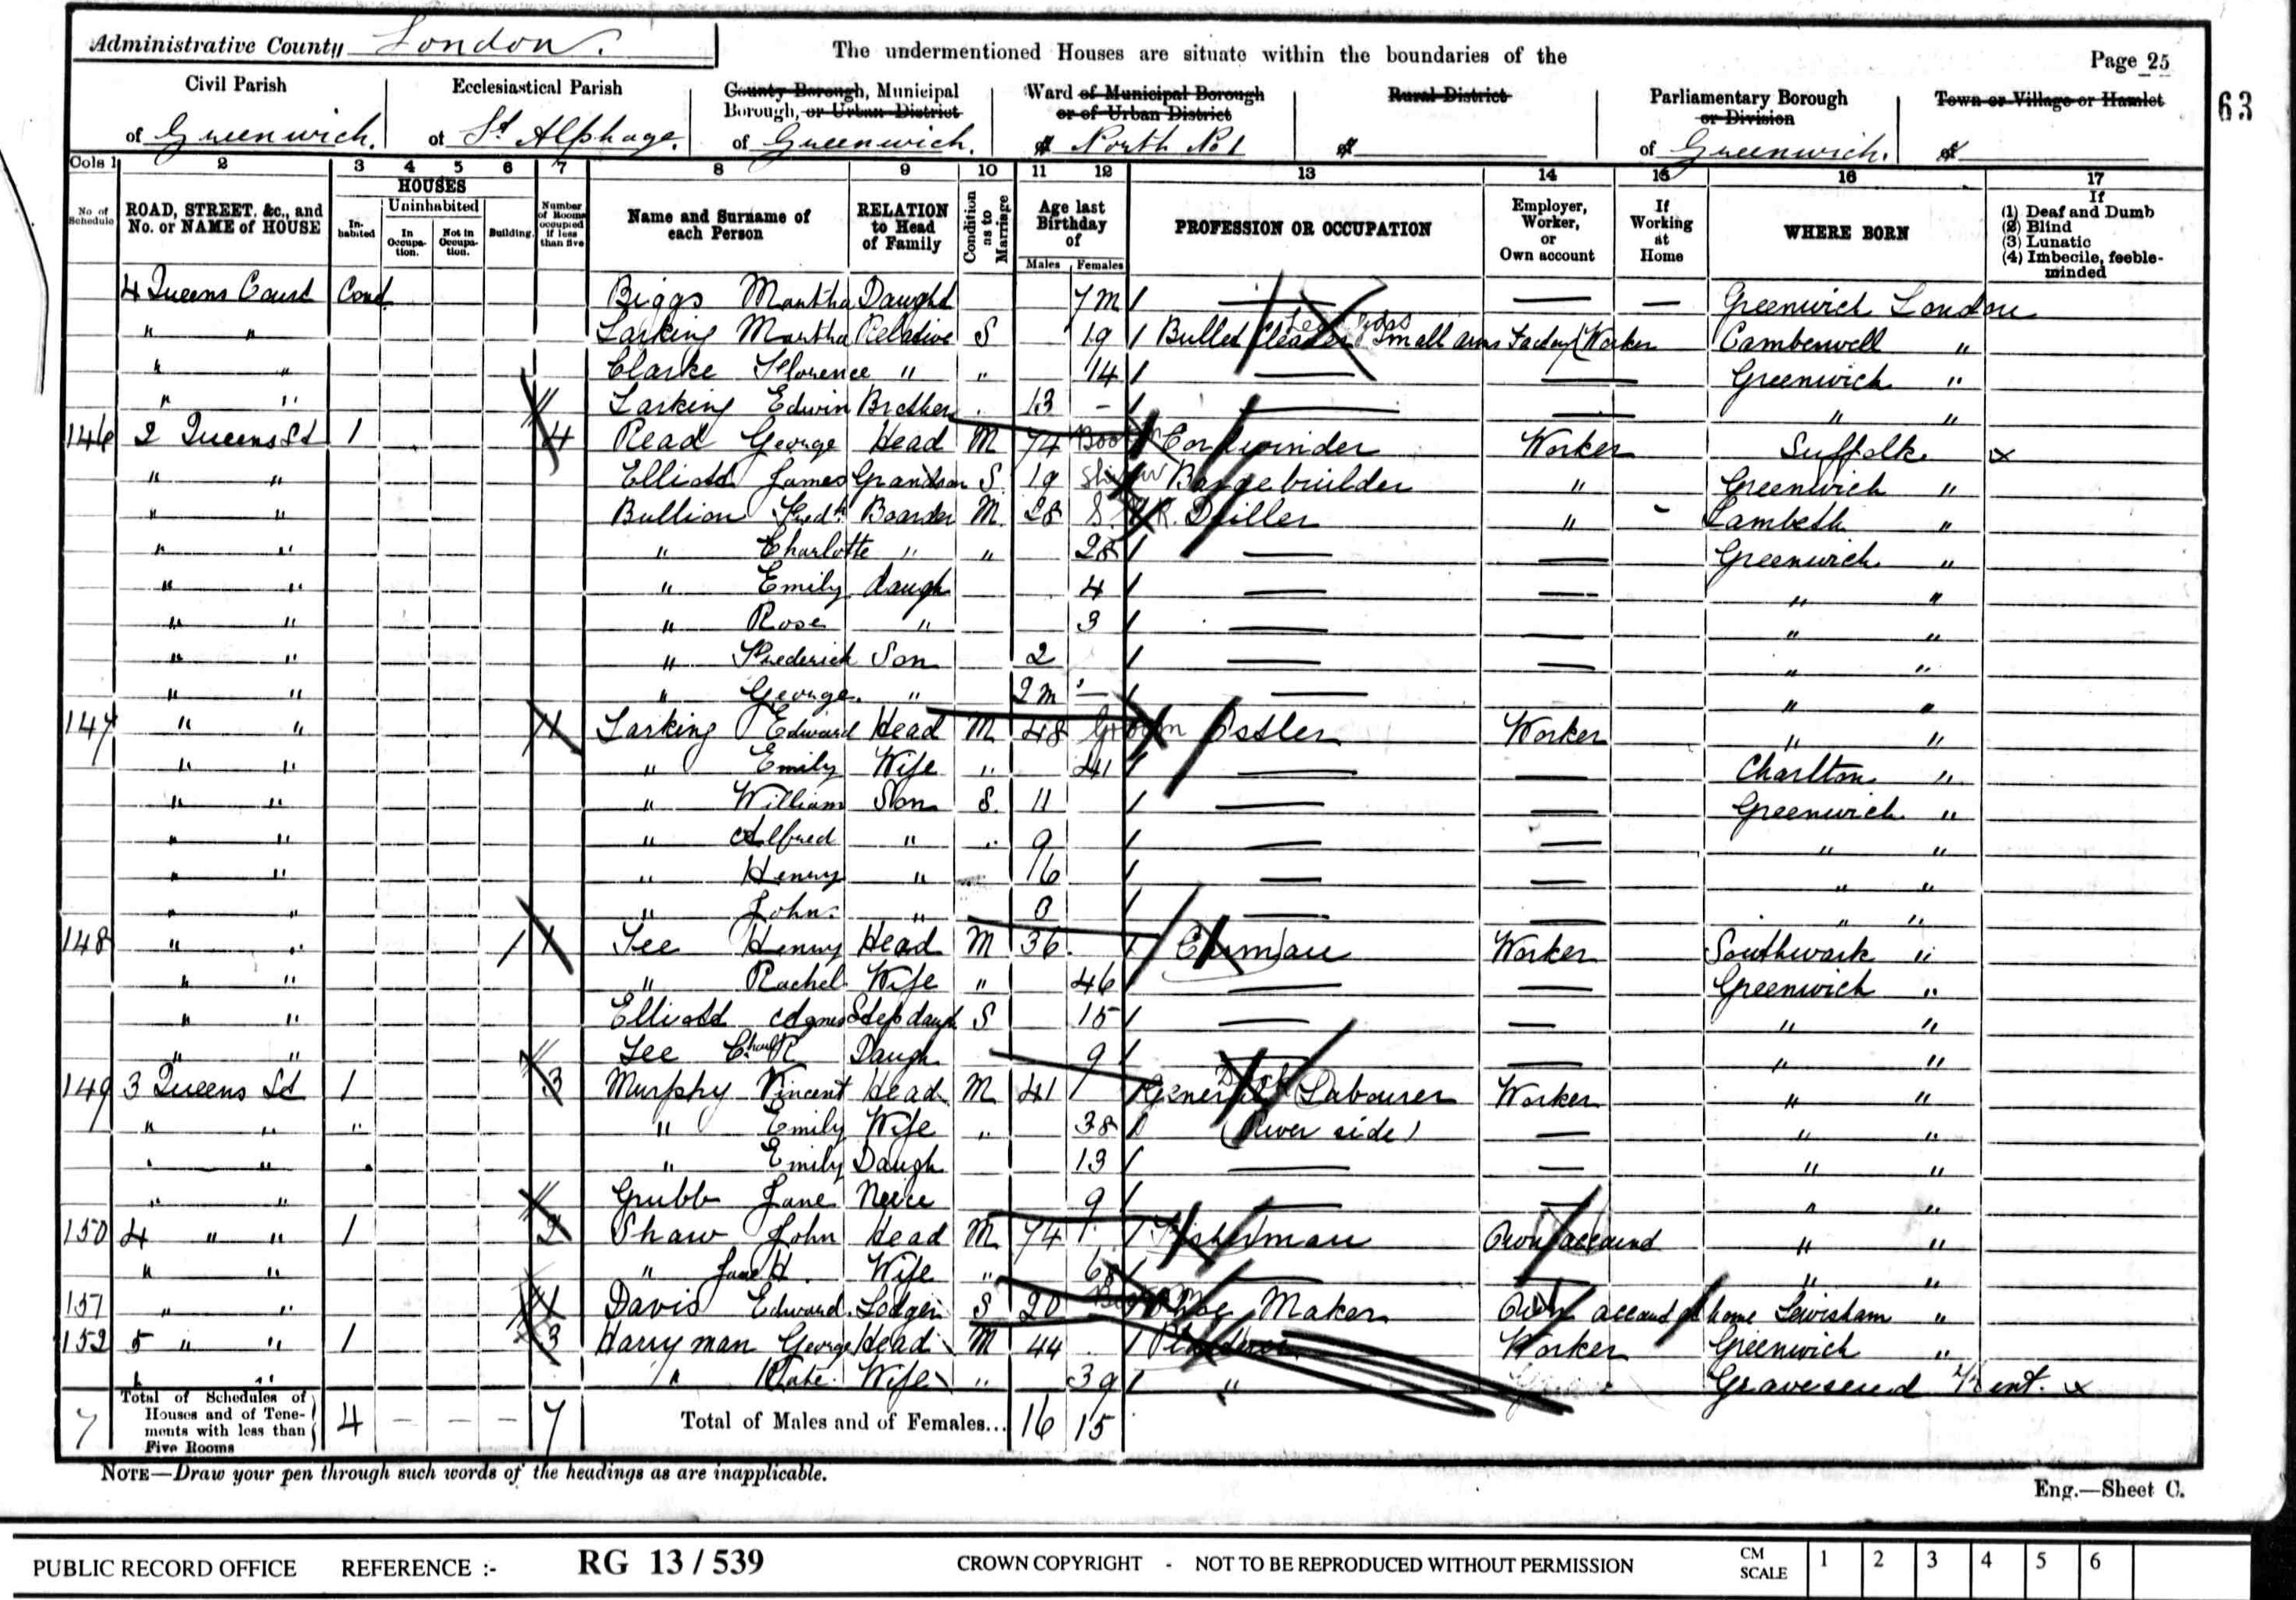 Administrative County London.
The undermentioned Houses are situate within the boundaries of the
Page 25
63
Civil Parish of Greenwich.
Ecclesiastical Parish of St Alphage.
County Borough, Municipal Borough, or Urban District of Greenwich.
Ward of Municipal Borough or of Urban District of North No 1
Rural District of
Parliamentary Borough or Division of Greenwich.
Town or Village or Hamlet of
Cols 1 2 3 4 5 6 7 8 9 10 11 12 13 14 15 16 17
No of Schedule
ROAD, STREET, &c., and No. or NAME of HOUSE
HOUSES
Inhabited
Uninhabited
In Occupation.
Not in Occupation.
Building.
Number of Rooms occupied if less than five
Name and Surname of each Person
RELATION to Head of Family
Condition as to Marriage
Age last Birthday of
Males Females
PROFESSION OR OCCUPATION
Employer, Worker, or Own account
If Working at Home
WHERE BORN
If
(1) Deaf and Dumb
(2) Blind
(3) Lunatic
(4) Imbecile, feeble-minded
4 Queens Court Cont. Biggs Martha Daught 7m — — — Greenwich London
" " Larking Martha Relative S 19 Bullet Small arms Factory Worker Camberwell "
" " Clarke Florence " " 14 — — Greenwich "
" " Larking Edwin Brother . 13 - — — " "
146 2 Queens St 1 4 Read George Head M 74 Boot Cordwinder Worker Suffolk x
" " Elliott James Grandson S 19 Ship Bargebuilder " Greenwich "
" " Bullion Fredk Boarder M 28 Driller " - Lambeth "
" " " Charlotte " " 28 — — Greenwich "
" " " Emily daugh 4 — — " "
" " " Rose " 3 — — " "
" " " Frederick Son 2 — — " "
" " " George. " 2m — — " "
147 " " 1 Larking Edward Head M 48 Groom Ostler Worker " "
" " " Emily Wife " 41 — — Charlton "
" " " William Son S. 11 — — Greenwich "
" " " Alfred " " 9 — — " "
" " " Henry " 16 — — " "
" " " John. " — — " "
148 " " 1 Lee Henry Head M 36 Carman Worker Southwark "
" " " Rachel Wife " 46 — — Greenwich "
" " Elliott Agnes Stepdaugh S 15 — — " "
" " Lee R Daugh 9 — — " "
149 3 Queens St 1 3 Murphy Vincent Head M 41 General Labourer Worker " "
" " " " Emily Wife " 38 (River side) — " "
" " " Emily Daugh 13 — — " "
" " Grubb Jane Neice 9 — — " "
150 4 " " 1 2 Shaw John Head M 74 Fisherman Own account " "
" " " Jane H. Wife " — — " "
151 " " 1 Davis Edward Lodger S 20 Shoe Maker Own account at home Lewisham "
152 5 " " 1 3 Harryman George Head M 44 Worker Greenwich "
" " " Kate. Wife " 39 " Gravesend Kent. x
7 Total of Schedules of Houses and of Tenements with less than Five Rooms 4 — — — 7 Total of Males and of Females... 16 15
NOTE—Draw your pen through such words of the headings as are inapplicable.
Eng.—Sheet C.
PUBLIC RECORD OFFICE REFERENCE :- RG 13 / 539 CROWN COPYRIGHT - NOT TO BE REPRODUCED WITHOUT PERMISSION CM SCALE 1 2 3 4 5 6